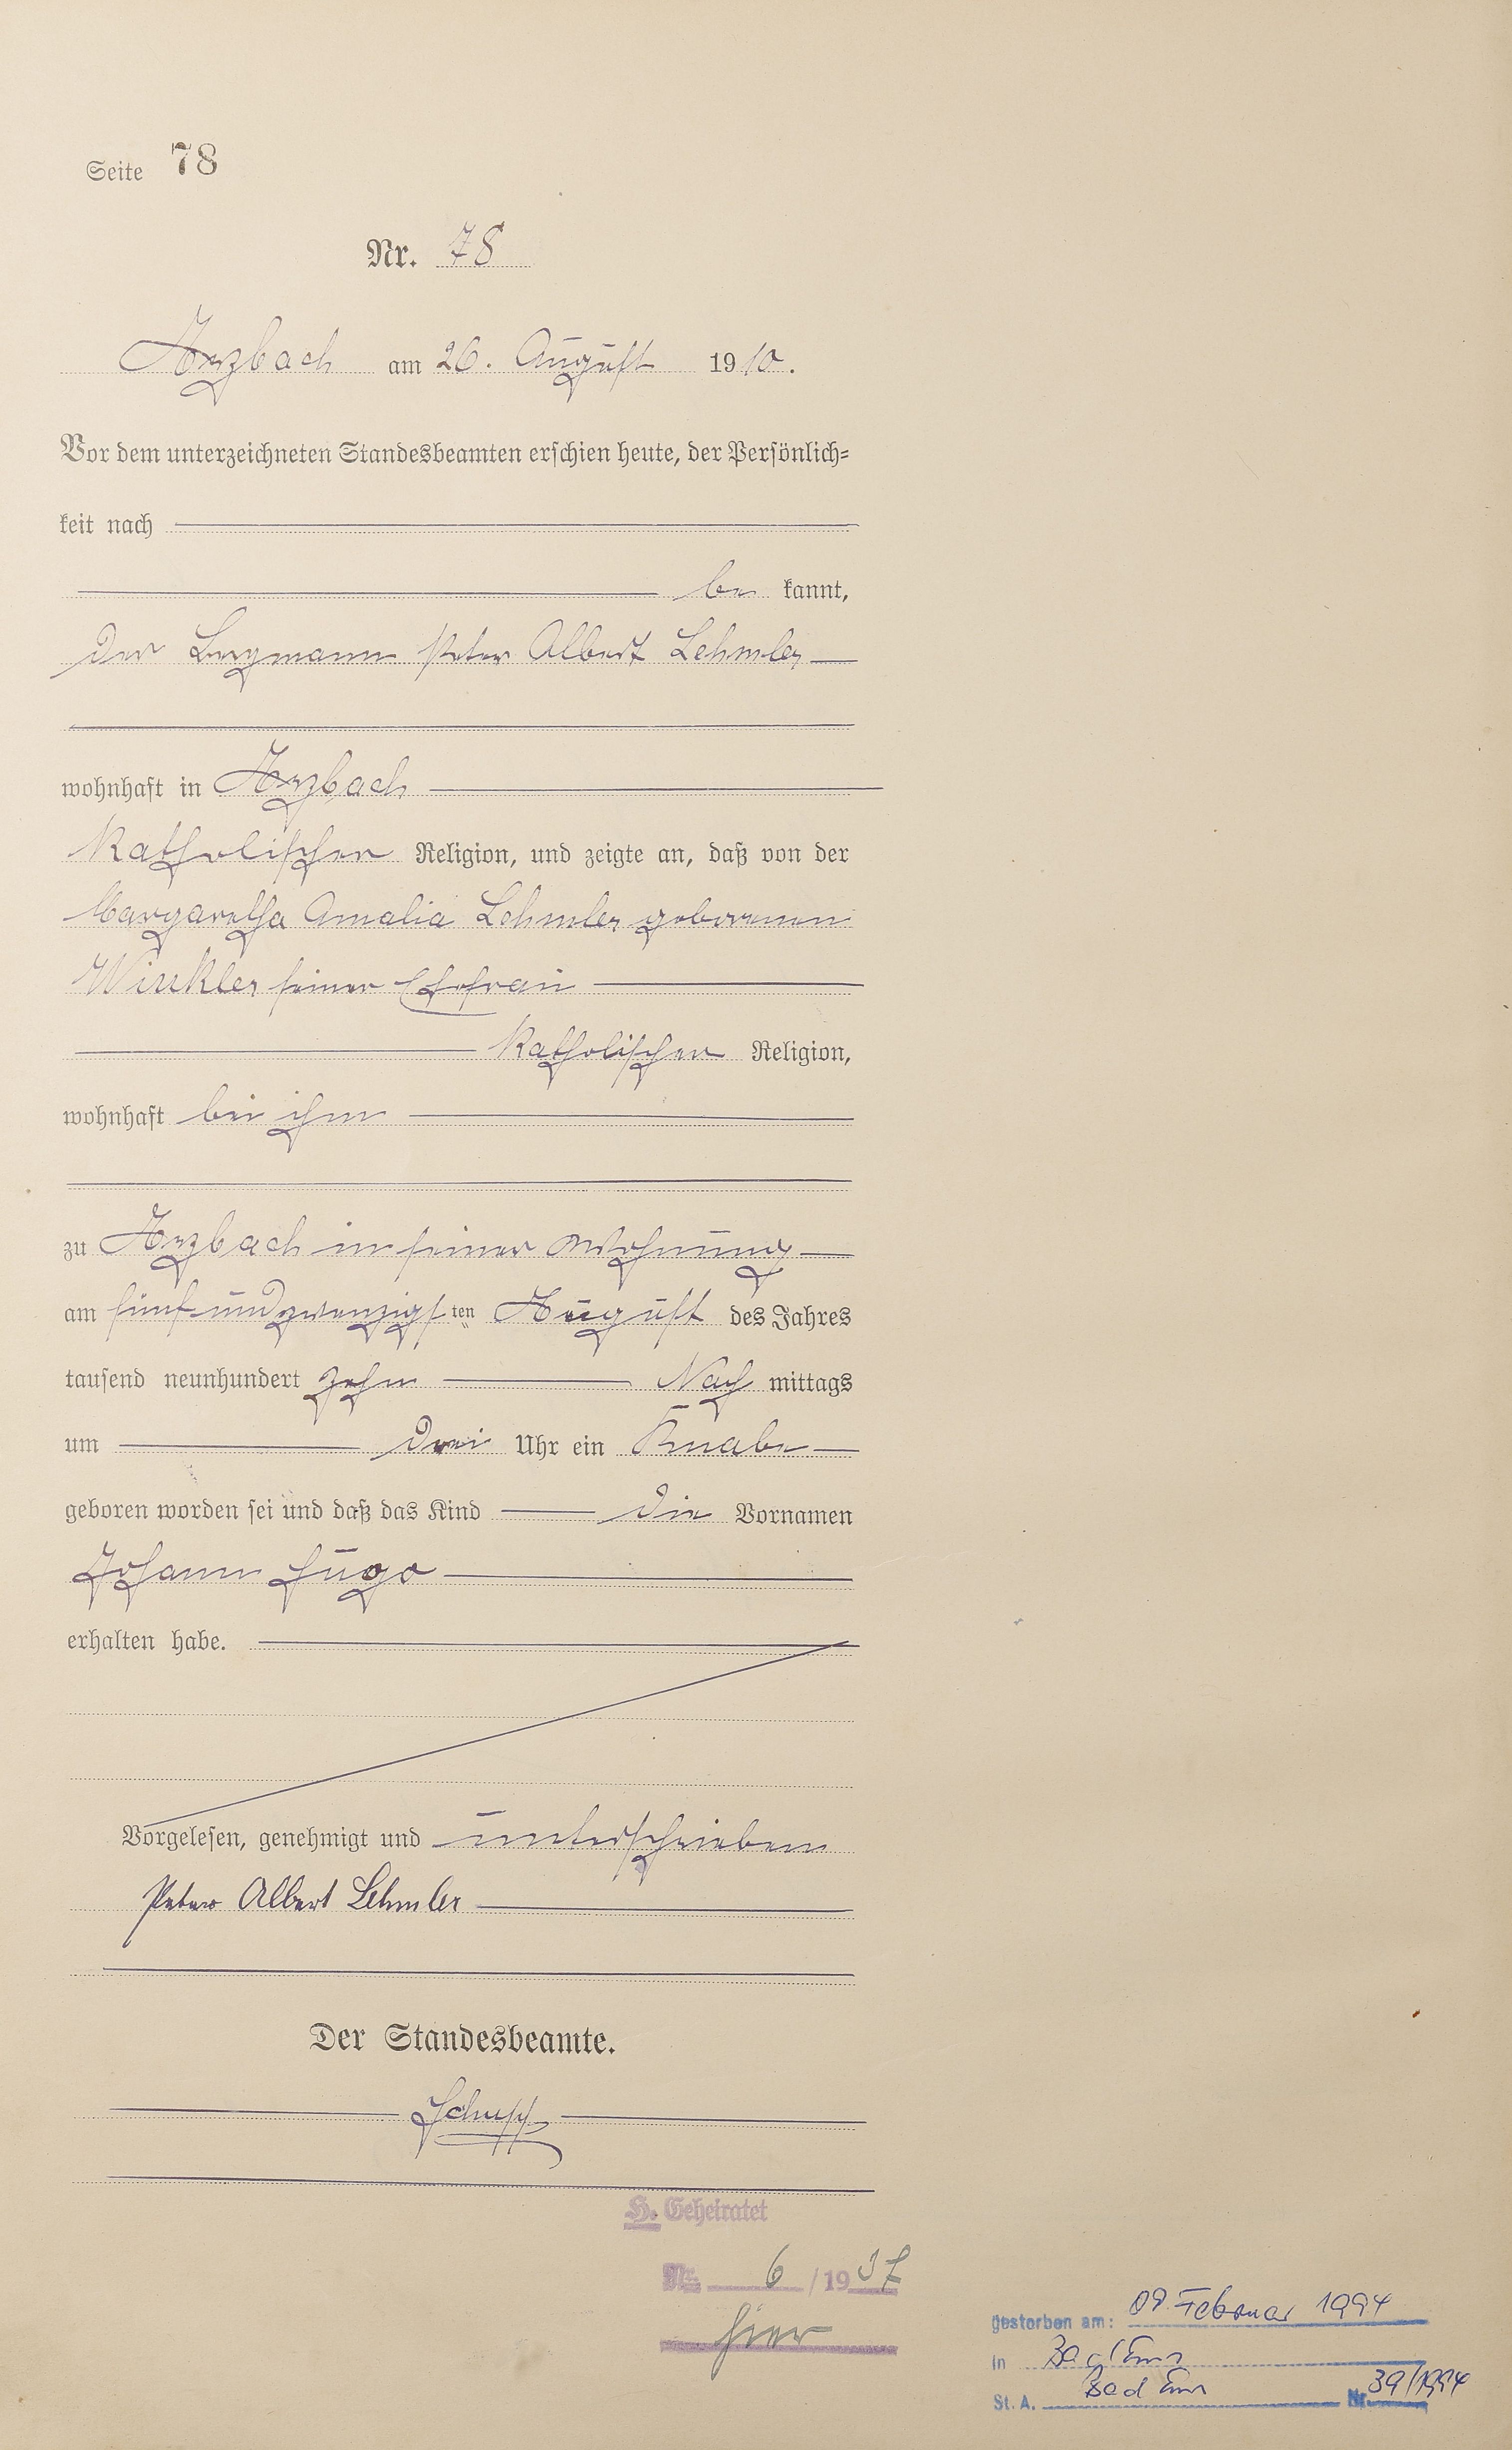 Seite 78
Nr. 78
Arzbach am 26. August 1910.
Vor dem unterzeichneten Standesbeamten erschien heute, der Persönlich=
keit nach
be kannt,
der Bergmann Peter Albert Lehmler
wohnhaft in Arzbach
katholischer Religion, und zeigte an, daß von der
Margaretha Amalia Lehmler geborenen
Winkler seiner Ehefrau
katholischer Religion,
wohnhaft bei ihm
zu Arzbach in seiner Wohnung
am fünfundzwanzigsten August des Jahres
tausend neunhundert zehn Nach mittags
um drei Uhr ein Knabe
geboren worden sei und daß das Kind die Vornamen
Johann Hugo
erhalten habe.
Vorgelesen, genehmigt und unterschrieben
Peter Albert Lehmler
Der Standesbeamte.
Schupp
H. Geheiratet
Nr. 6/1937
hier
gestorben am: Februar 1994
in Bad Ems
St. A. Bad Ems Nr. 39/1994